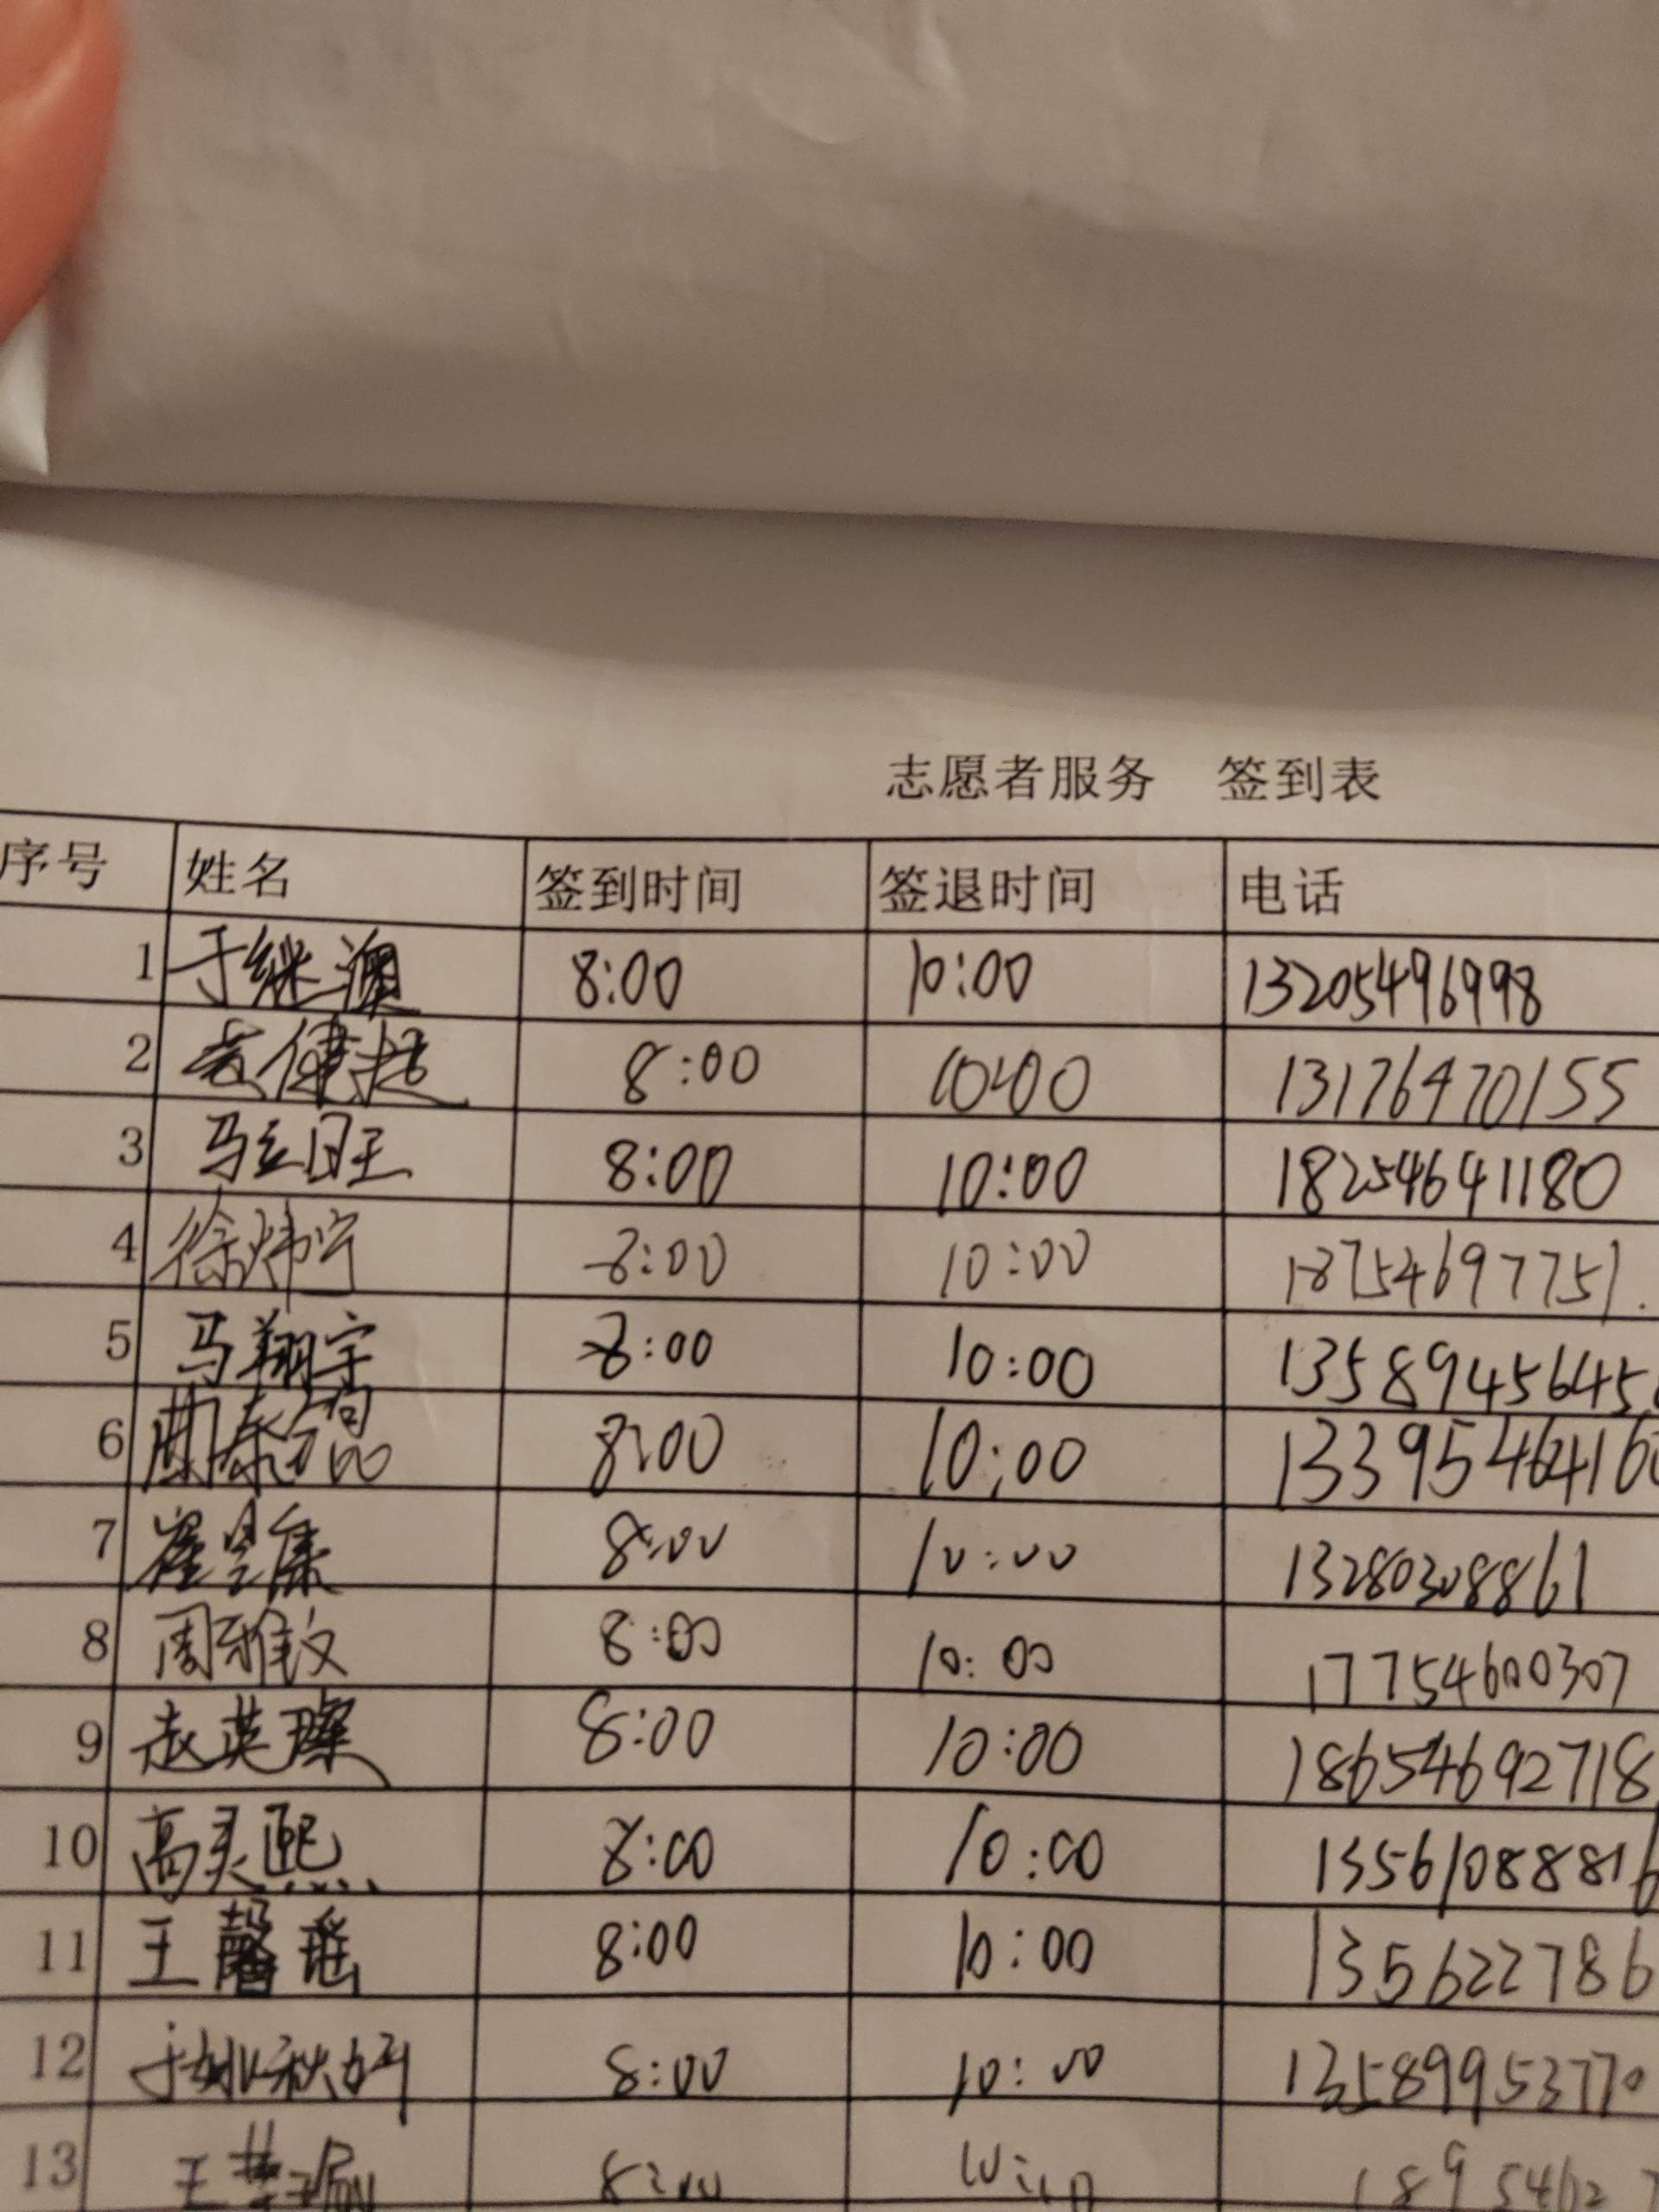 志愿者服务 签到表
序号 姓名 签到时间 签退时间 电话
1 于继澳 8:00 10:00 13205496998
2 8:00 10:00 13176470155
3 马立国王 8:00 10:00 18254641180
4 徐炜宁 8:00 10:00 18754697751.
5 马翔宇 8:00 10:00 1358945645
6 曲泰 8:00 10:00 1339546416
7 崔昱集 8:00 10:00 13280308861
8 周雅文 8:00 10:00 17754600307
9 赵英璨 8:00 10:00 18654692718
10 高灵熙 8:00 10:00 13561088816
11 王馨瑶 8:00 10:00 135622786
12 于姚秋妍 8:00 10:00 13589953770
13 王梦瑜 8:00 10:00